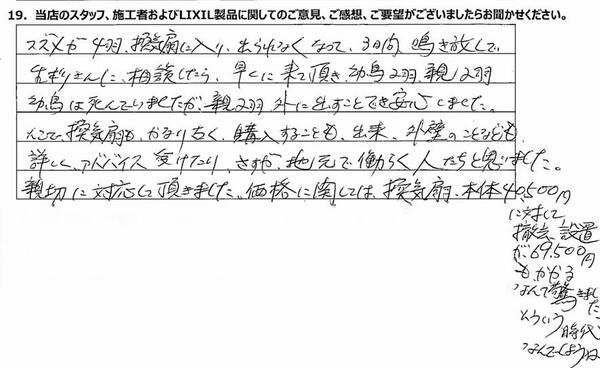 19. 当店のスタッフ、施工者およびLIXIL製品に関してのご意見、ご感想、ご要望がございましたらお聞かせください。
スズメが4羽、換気扇に入り、出られなくなって、3日間、鳴き放して、
さんに、相談したら、早くに来て頂き、幼鳥2羽、親2羽
幼鳥は死んでいましたが、親2羽、外に出すことでき安心しました。
換気扇も、かなり古く、購入することも、出来、外壁のことなども、
詳しく、アドバイス受けたり、さすが、地元で働らく人たちと思いました。
親切に対応して頂きました。価格に関しては、換気扇、本体40,500円
に対して
撤去、設置
が、69,500円
も、かかる
なんて驚きました
そういう時代
なんでしょうね